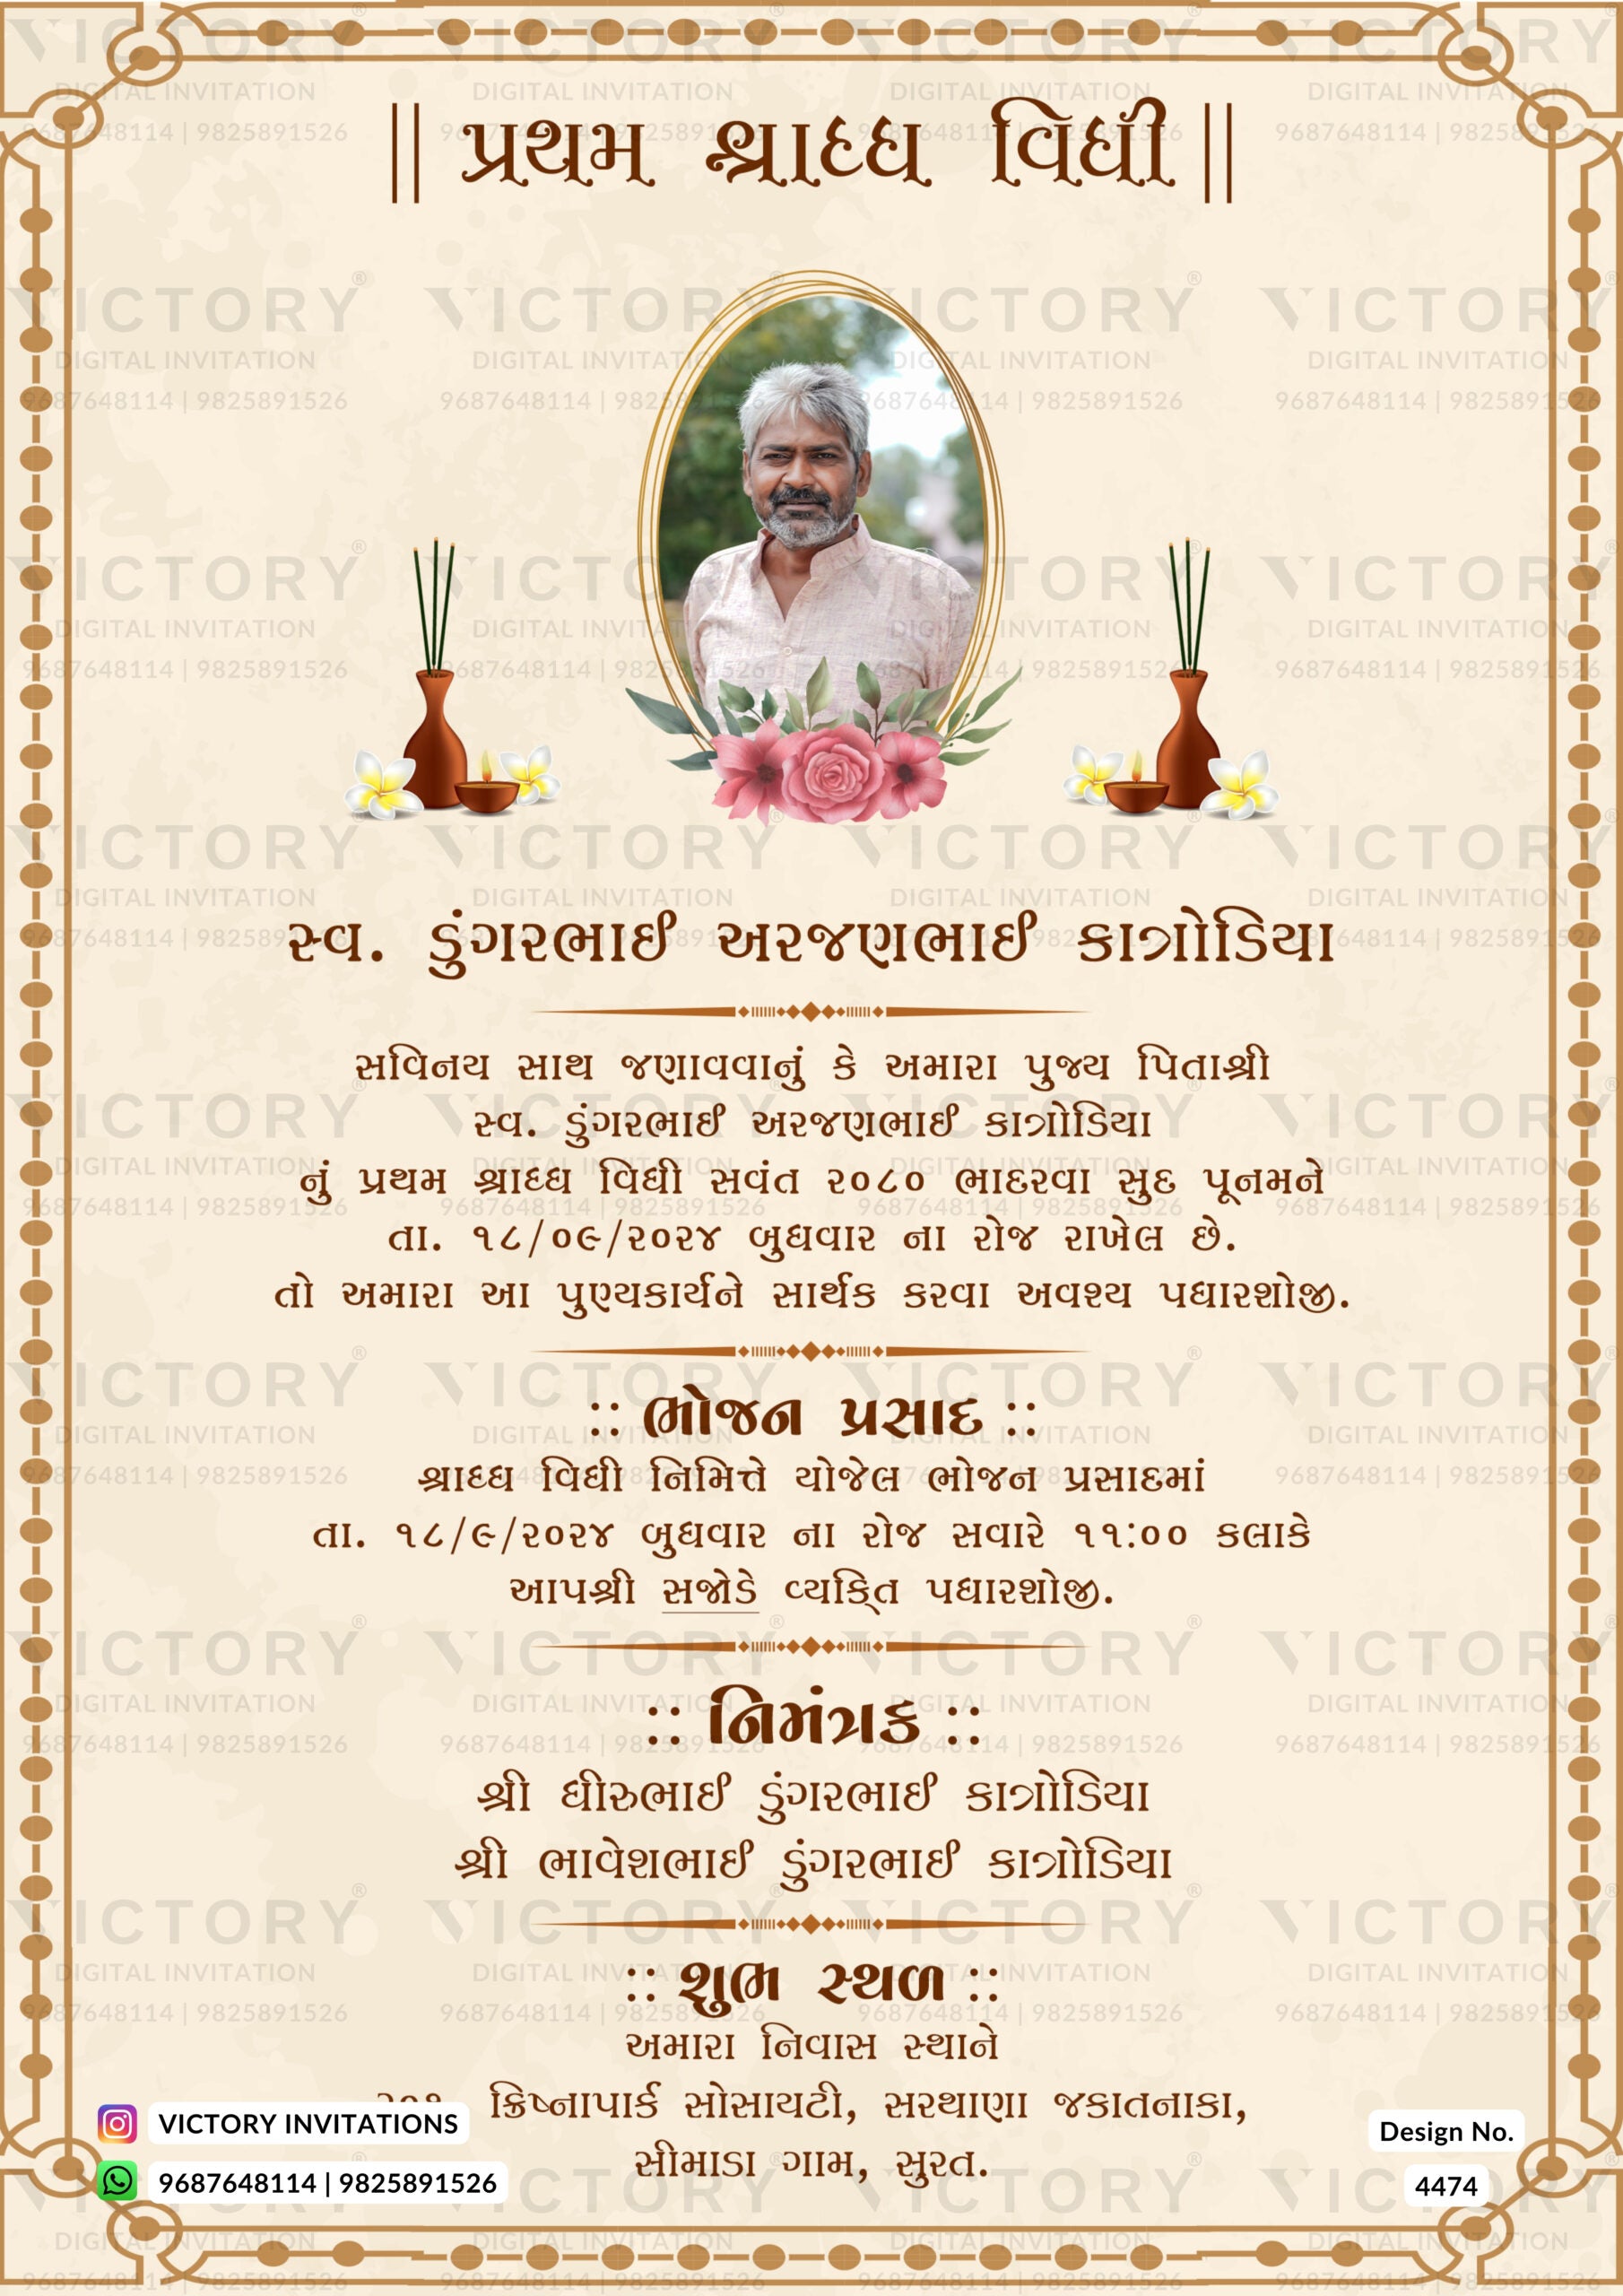 || પ્રથમ શ્રાધ્ધ વિધી ||
સ્વ. ડુંગરભાઈ અરજણભાઈ કાત્રોડિયા
સવિનય સાથ જણાવવાનું કે અમારા પુજ્ય પિતાશ્રી
સ્વ. ડુંગરભાઈ અરજણભાઈ કાત્રોડિયા
નું પ્રથમ શ્રાધ્ધ વિધી સવંત ૨૦૮૦ ભાદરવા સુદ પૂનમને
તા. ૧૮/૦૯/૨૦૨૪ બુધવાર ના રોજ રાખેલ છે.
તો અમારા આ પુણ્યકાર્યને સાર્થક કરવા અવશ્ય પધારશોજી.
:: ભોજન પ્રસાદ ::
શ્રાધ્ધ વિધી નિમિત્તે યોજેલ ભોજન પ્રસાદમાં
તા. ૧૮/૯/૨૦૨૪ બુધવાર ના રોજ સવારે ૧૧:૦૦ કલાકે
આપશ્રી સજોડે વ્યકિ્ત પધારશોજી.
:: નિમંત્રક ::
શ્રી ધીરુભાઈ ડુંગરભાઈ કાત્રોડિયા
શ્રી ભાવેશભાઈ ડુંગરભાઈ કાત્રોડિયા
:: શુભ સ્થળ ::
અમારા નિવાસ સ્થાને
ક્રિષ્નાપાર્ક સોસાયટી, સરથાણા જકાતનાકા,
સીમાડા ગામ, સુરત.
VICTORY INVITATIONS
9687648114 | 9825891526
Design No.
4474
VICTORY®
DIGITAL INVITATION
9687648114 | 9825891526